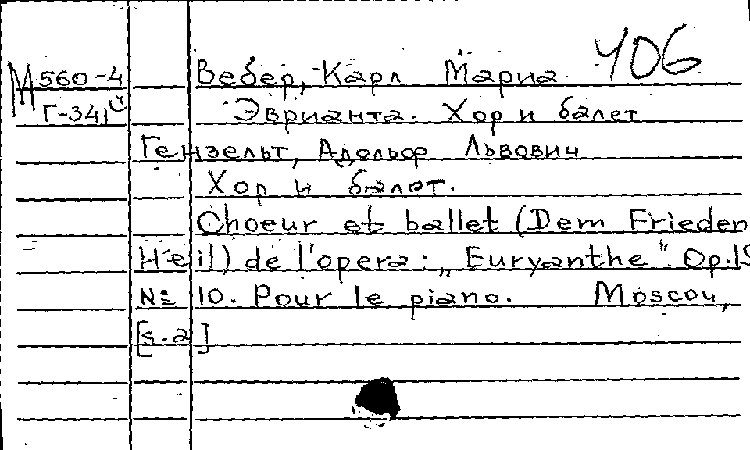 406
М 560-4 Вебер, Карл Мариа
Г-341 Эврианта. Хор и балет
Гензельт, Адольф Львович
Хор и балет.
Choeur et ballet (Dem Frieden
Heil) de l'opera: „Euryanthe" Op.
№ 10. Pour le piano. Moscou,
[s.a]